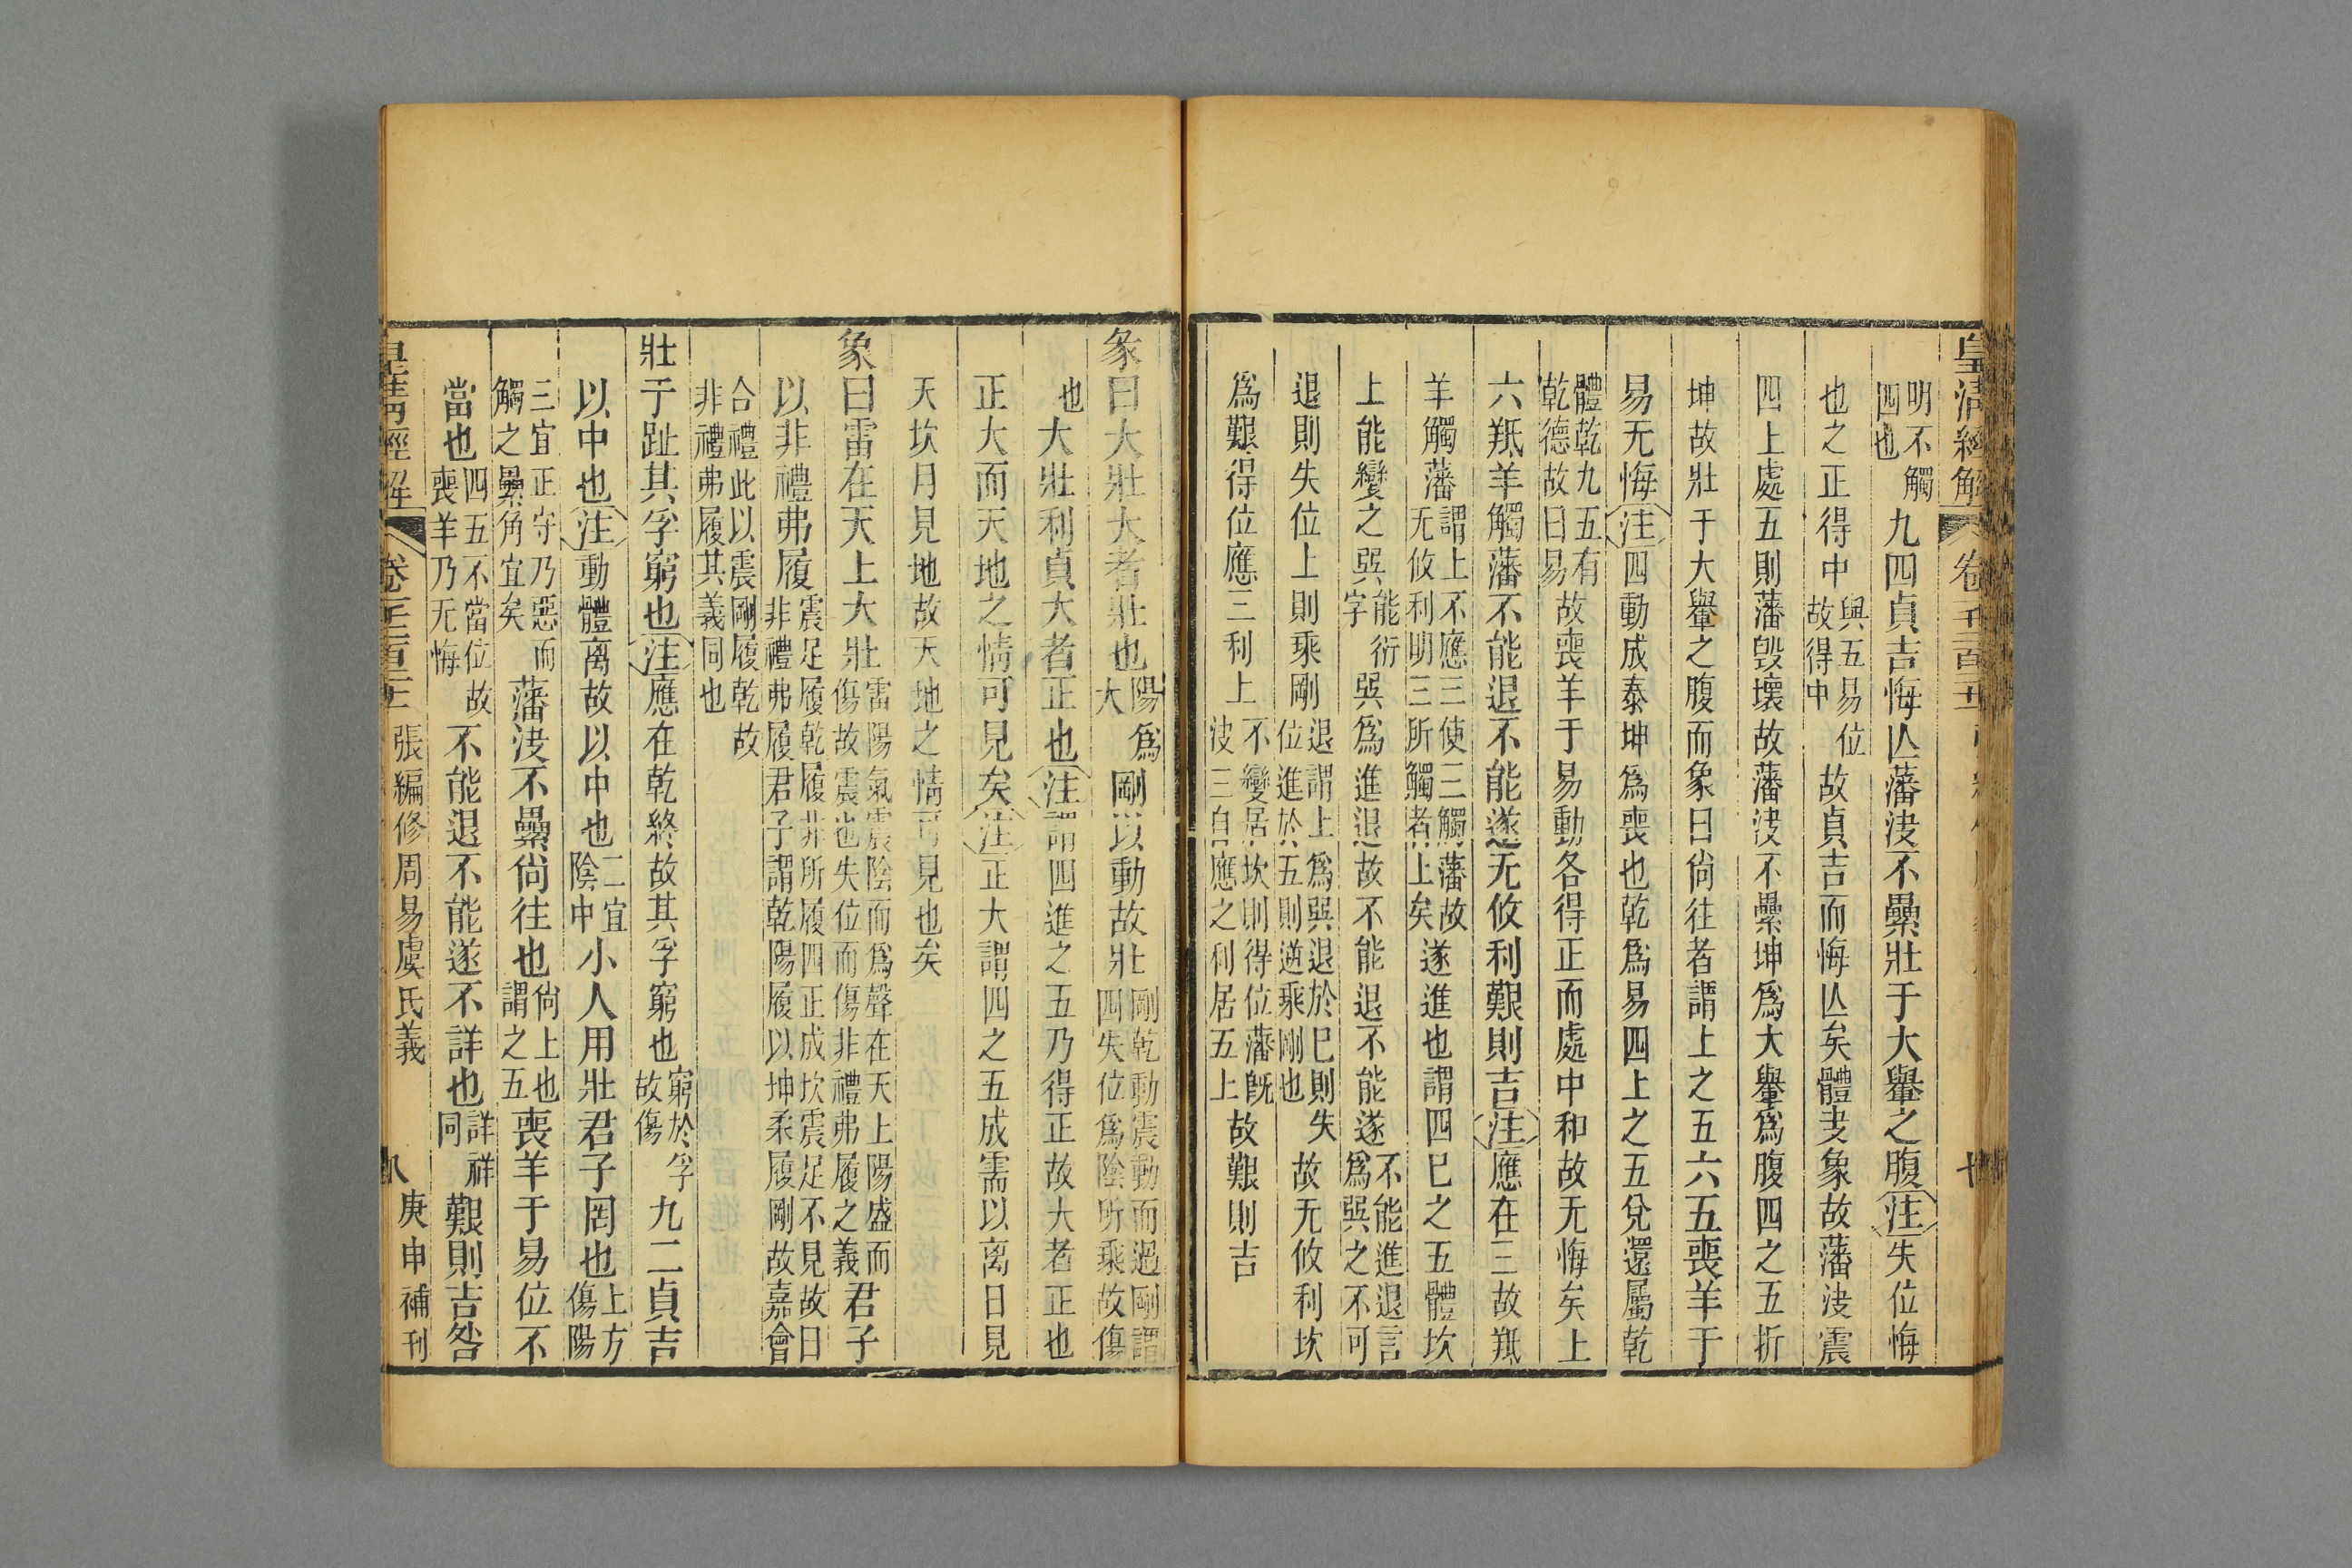 皇清經解
明不觸四也九四貞吉悔亾藩決不羸壯于大轝之腹注失位悔
也之正得中與五易位故得中故貞吉而悔亾矣體夬象故藩決震
四上處五則藩毀壞故藩決不羸坤爲大轝爲腹四之五折
坤故壯于大轝之腹而象曰尙往者謂上之五六五喪羊于
易无悔注四動成泰坤爲喪也乾爲易四上之五兌還屬乾
體乾九五有乾德故曰易故喪羊于易動各得正而處中和故无悔矣上
六羝羊觸藩不能退不能遂无攸利艱則吉注應在三故羝
羊觸藩謂上不應三使三觸藩故无攸利明三所觸者上矣遂進也謂四巳之五體坎
上能變之巽能衍字巽爲進退故不能退不能遂不能進退言爲巽之不可
退則失位上則乘剛退謂上爲巽退於巳則失位進於五則遒乘剛也故无攸利坎
爲艱得位應三利上不變居坎則得位藩旣決三自應之利居五上故艱則吉
彖曰大壯大者壯也陽爲大剛以動故壯剛乾動震動而過剛謂四失位爲陰所乘故傷
也大壯利貞大者正也注謂四進之五乃得正故大者正也
正大而天地之情可見矣注正大謂四之五成需以离日見
天坎月見地故天地之情可見也矣
象曰雷在天上大壯雷陽氣震陰而爲聲在天上陽盛而傷故震也失位而傷非禮弗履之義君子
以非禮弗履震足履乾履非所履四正成坎震足不見故曰非禮弗履君子謂乾陽履以坤柔履剛故嘉會
合禮此以震剛履乾故非禮弗履其義同也
壯于趾其孚窮也注應在乾終故其孚窮也窮於孚故傷九二貞吉
以中也注動體离故以中也二宜陰中小人用壯君子罔也上方傷陽
三宜正守乃惡而觸之羸角宜矣藩決不羸尙往也尙上也謂之五喪羊于易位不
當也四五不當位故喪羊乃无悔不能退不能遂不詳也詳祥同艱則吉咎
張編修周易虞氏義
八
庚申補刊